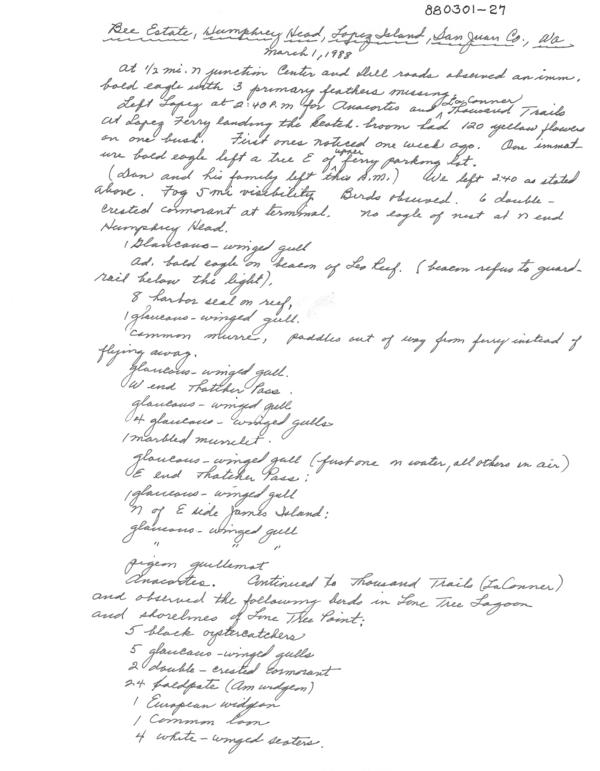 880301-27
Bee Estate, Humphrey Head, Lopez Island, San Juan Co., Wa
March 1, 1988
At 1/2 mi. N junction Center and Dill roads observed an imm.
bald eagle with 3 primary feathers missing.
Left Lopez at 2:40 P.M for Anacortes and LaConner Thousand Trails
At Lopez Ferry landing the Scotch-broom had 120 yellow flowers
on one bush. First ones noticed one week ago. One immat-
ure bald eagle left a tree E of upper ferry parking lot.
(Dan and his family left this A.M.) We left 2:40 as stated
above. Fog 5 mi visibility Birds observed. 6 double-
crested cormorant at terminal. No eagle of nest at N end
Humphrey Head.
1 Glaucous-winged gull
ad. bald eagle on beacon of Leo Reef. (beacon refus to guard-
rail below the light).
8 harbor seal on reef,
1 glaucous-winged gull.
Common murre, paddles out of way from ferry instead of
flying away.
glaucous-winged gull.
W end Thatcher Pass.
glaucous-winged gull
4 glaucous-winged gulls
1 marbled murrelet.
glaucous-winged gull (just one in water, all others in air)
E end Thatcher Pass:
1 glaucous-winged gull
N of E side James Island:
glaucous-winged gull
" "
pigeon guillemot
Anacortes. Continued to Thousand Trails (LaConner)
and observed the following birds in Lone Tree Lagoon
and shorelines of Lone Tree Point:
5 black oystercatchers
5 glaucous-winged gulls
2 double-crested cormorant
24 baldpate (Am widgeon)
1 European widgeon
1 Common loon
4 white-winged scoters.